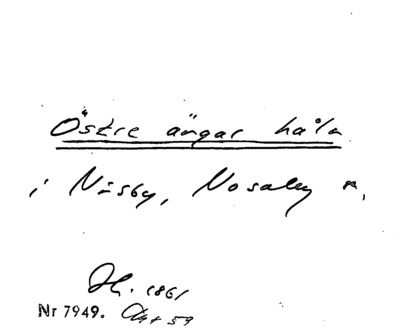 Östre ängar håla
i Näsby, Nosaby s.
H. 1861
Nr 7949. Akt 59